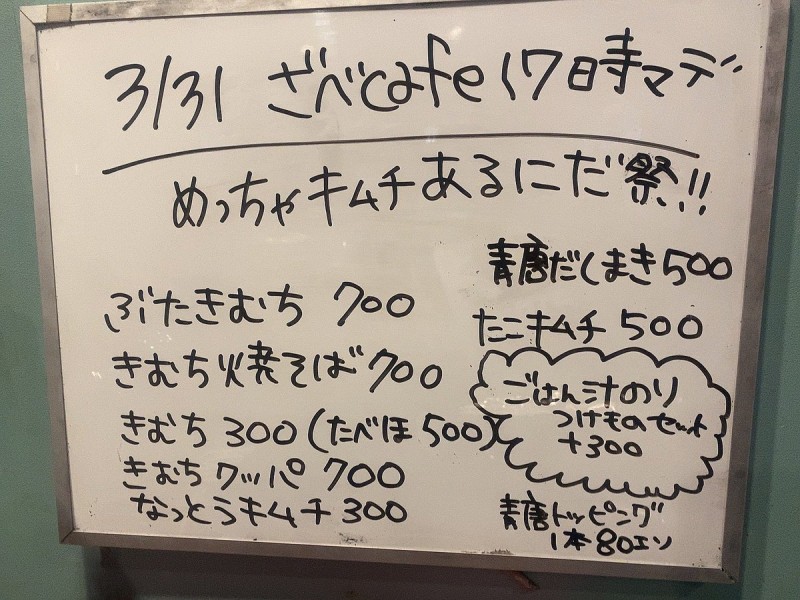 3/31 ざべcafe 17時マデ
めっちゃキムチあるにだ祭!!
ぶたきむち 700
きむち焼そば 700
きむち 300(たべほ 500)
きむちクッパ 700
なっとうキムチ 300
青唐だしまき 500
たこキムチ 500
ごはん汁のり
つけものセット
+300
青唐トッピング
1本80エン